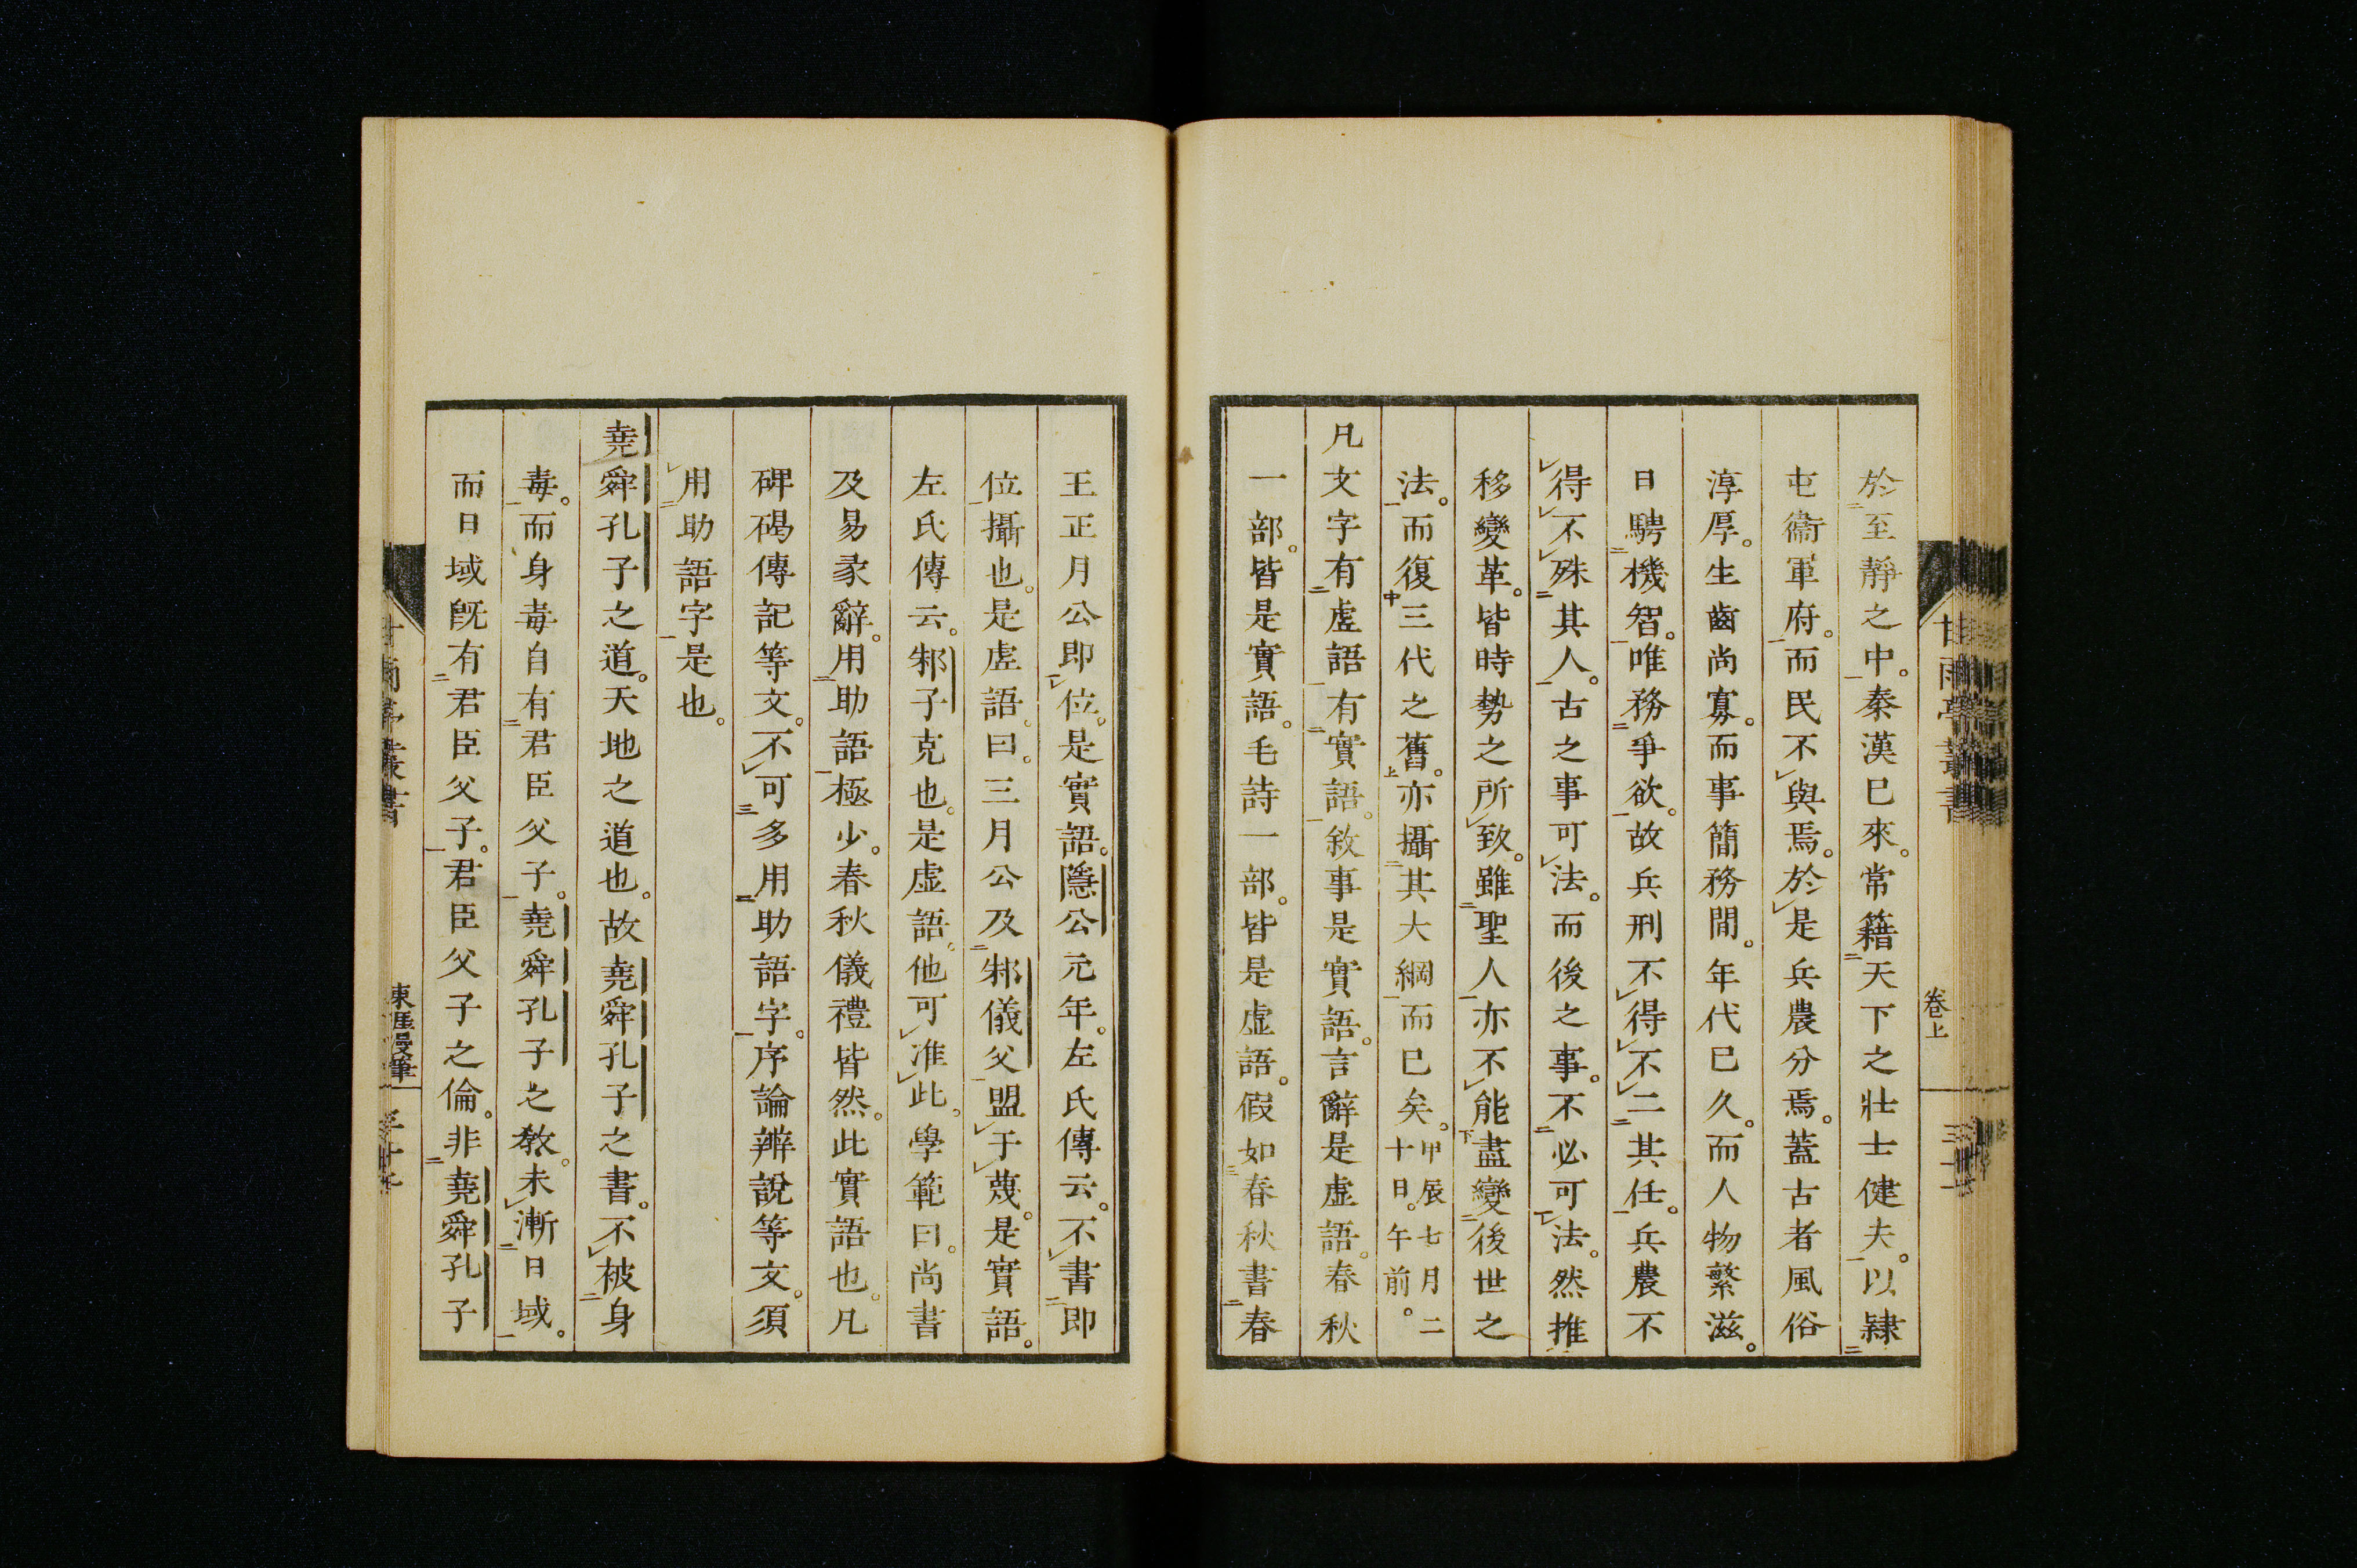 於至靜之中。秦漢已來。常籍天下之壯士健夫。以隸
屯衞軍府。而民不與焉。於是兵農分焉。蓋古者風俗
淳厚。生齒尚寡。而事簡務閒。年代已久。而人物繁滋。
日騁機智。唯務爭欲。故兵刑不得不二其任。兵農不
得不殊其人。古之事可法。而後之事。不必可法。然推
移變革。皆時勢之所致。雖聖人亦不能盡變後世之
法。而復三代之舊。亦攝其大綱而已矣。甲辰七月二十日。午前。
凡文字有虛語有實語。敘事是實語。言辭是虛語。春秋
一部。皆是實語。毛詩一部。皆是虛語。假如春秋書春
甘雨亭叢書
卷上
王正月公即位。是實語。隱公元年。左氏傳云。不書即
位攝也。是虛語。曰。三月公及邾儀父盟于蔑。是實語。
左氏傳云。邾子克也。是虛語。他可准此。學範曰。尚書
及易彖辭。用助語極少。春秋儀禮皆然。此實語也。凡
碑碣傳記等文。不可多用助語字。序論辨說等文。須
用助語字是也。
堯舜孔子之道。天地之道也。故堯舜孔子之書。不被身
毒。而身毒自有君臣父子。堯舜孔子之教。未漸日域。
而日域旣有君臣父子。君臣父子之倫。非堯舜孔子
東涯漫筆